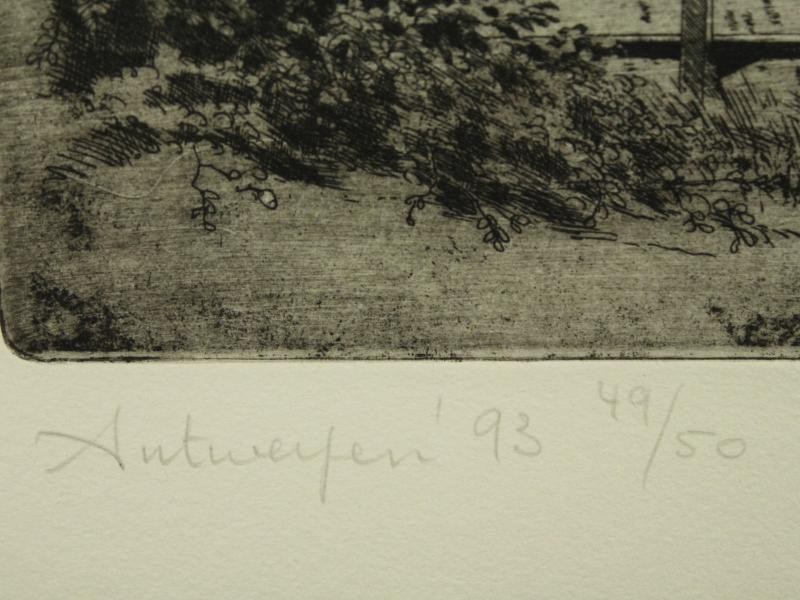 Antwerpen '93 49/50